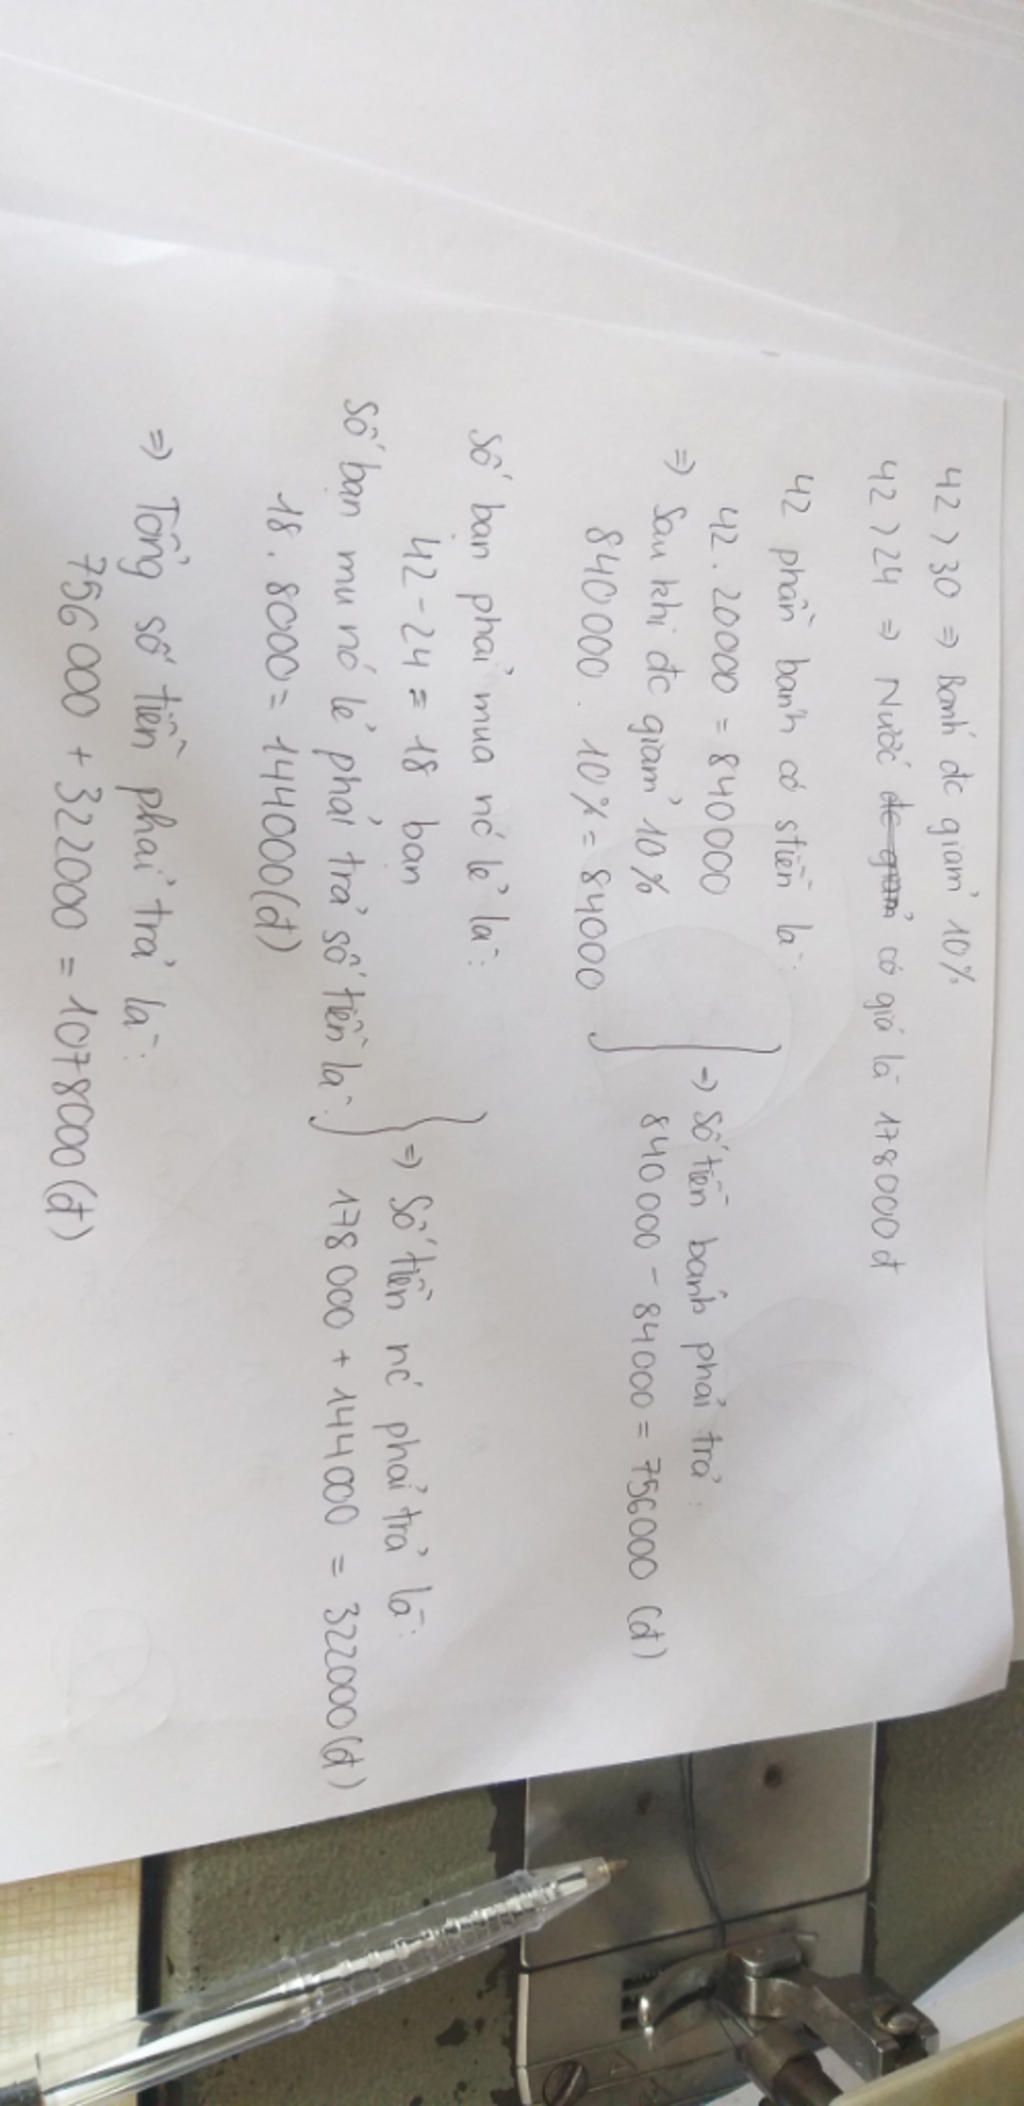 42 > 30 => Bánh đc giảm 10%
42 > 24 => Nước đc giảm có giá là 178000đ
42 phần bánh có stiền là:
42 . 20000 = 840000
=> Sau khi đc giảm 10%
840000 . 10% = 84000
=> Số tiền bánh phải trả:
840000 - 84000 = 756000 (đ)
Số bạn phải mua nć lẻ là:
42 - 24 = 18 bạn
Số bạn mu nć lẻ phải trả số tiền là:
18 . 8000 = 144000(đ)
=> Số tiền nć phải trả là:
178 000 + 144000 = 322000(đ)
=> Tổng số tiền phải trả là:
756 000 + 322000 = 1078000(đ)